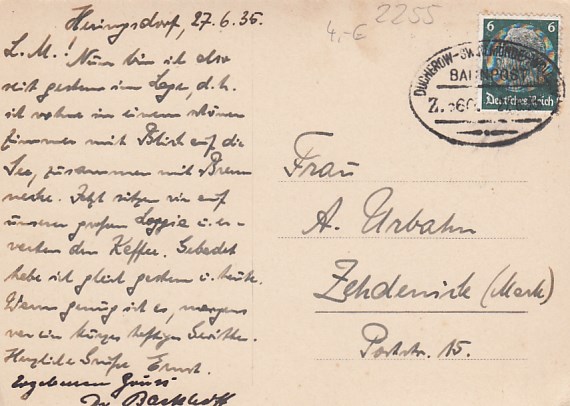 Heringsdorf, 27.6.36.
L. M.! Nun bin ich also
seit gestern im Lager, d. h.
ich wohne in einem schönen
Zimmer mit Blick auf die
See, zusammen mit Brenn
necke. Jetzt sitzen wir auf
unserer großen Loggia u. er-
warten den Kaffee. Gebadet
habe ich gleich gestern u. heute.
Warm genug ist es, morgens
war ein kurzes heftiges Gewitter.
Herzliche Grüße Ernst.
Ergebenen Gruss
Dr.
2255
4,-€
6 6
Deutsches Reich
DUCHEROW-SWINEMÜNDE-
BAHNPOST
Z.
Frau
A. Urbahn
Zehdenick (Mark)
Poststr. 15.